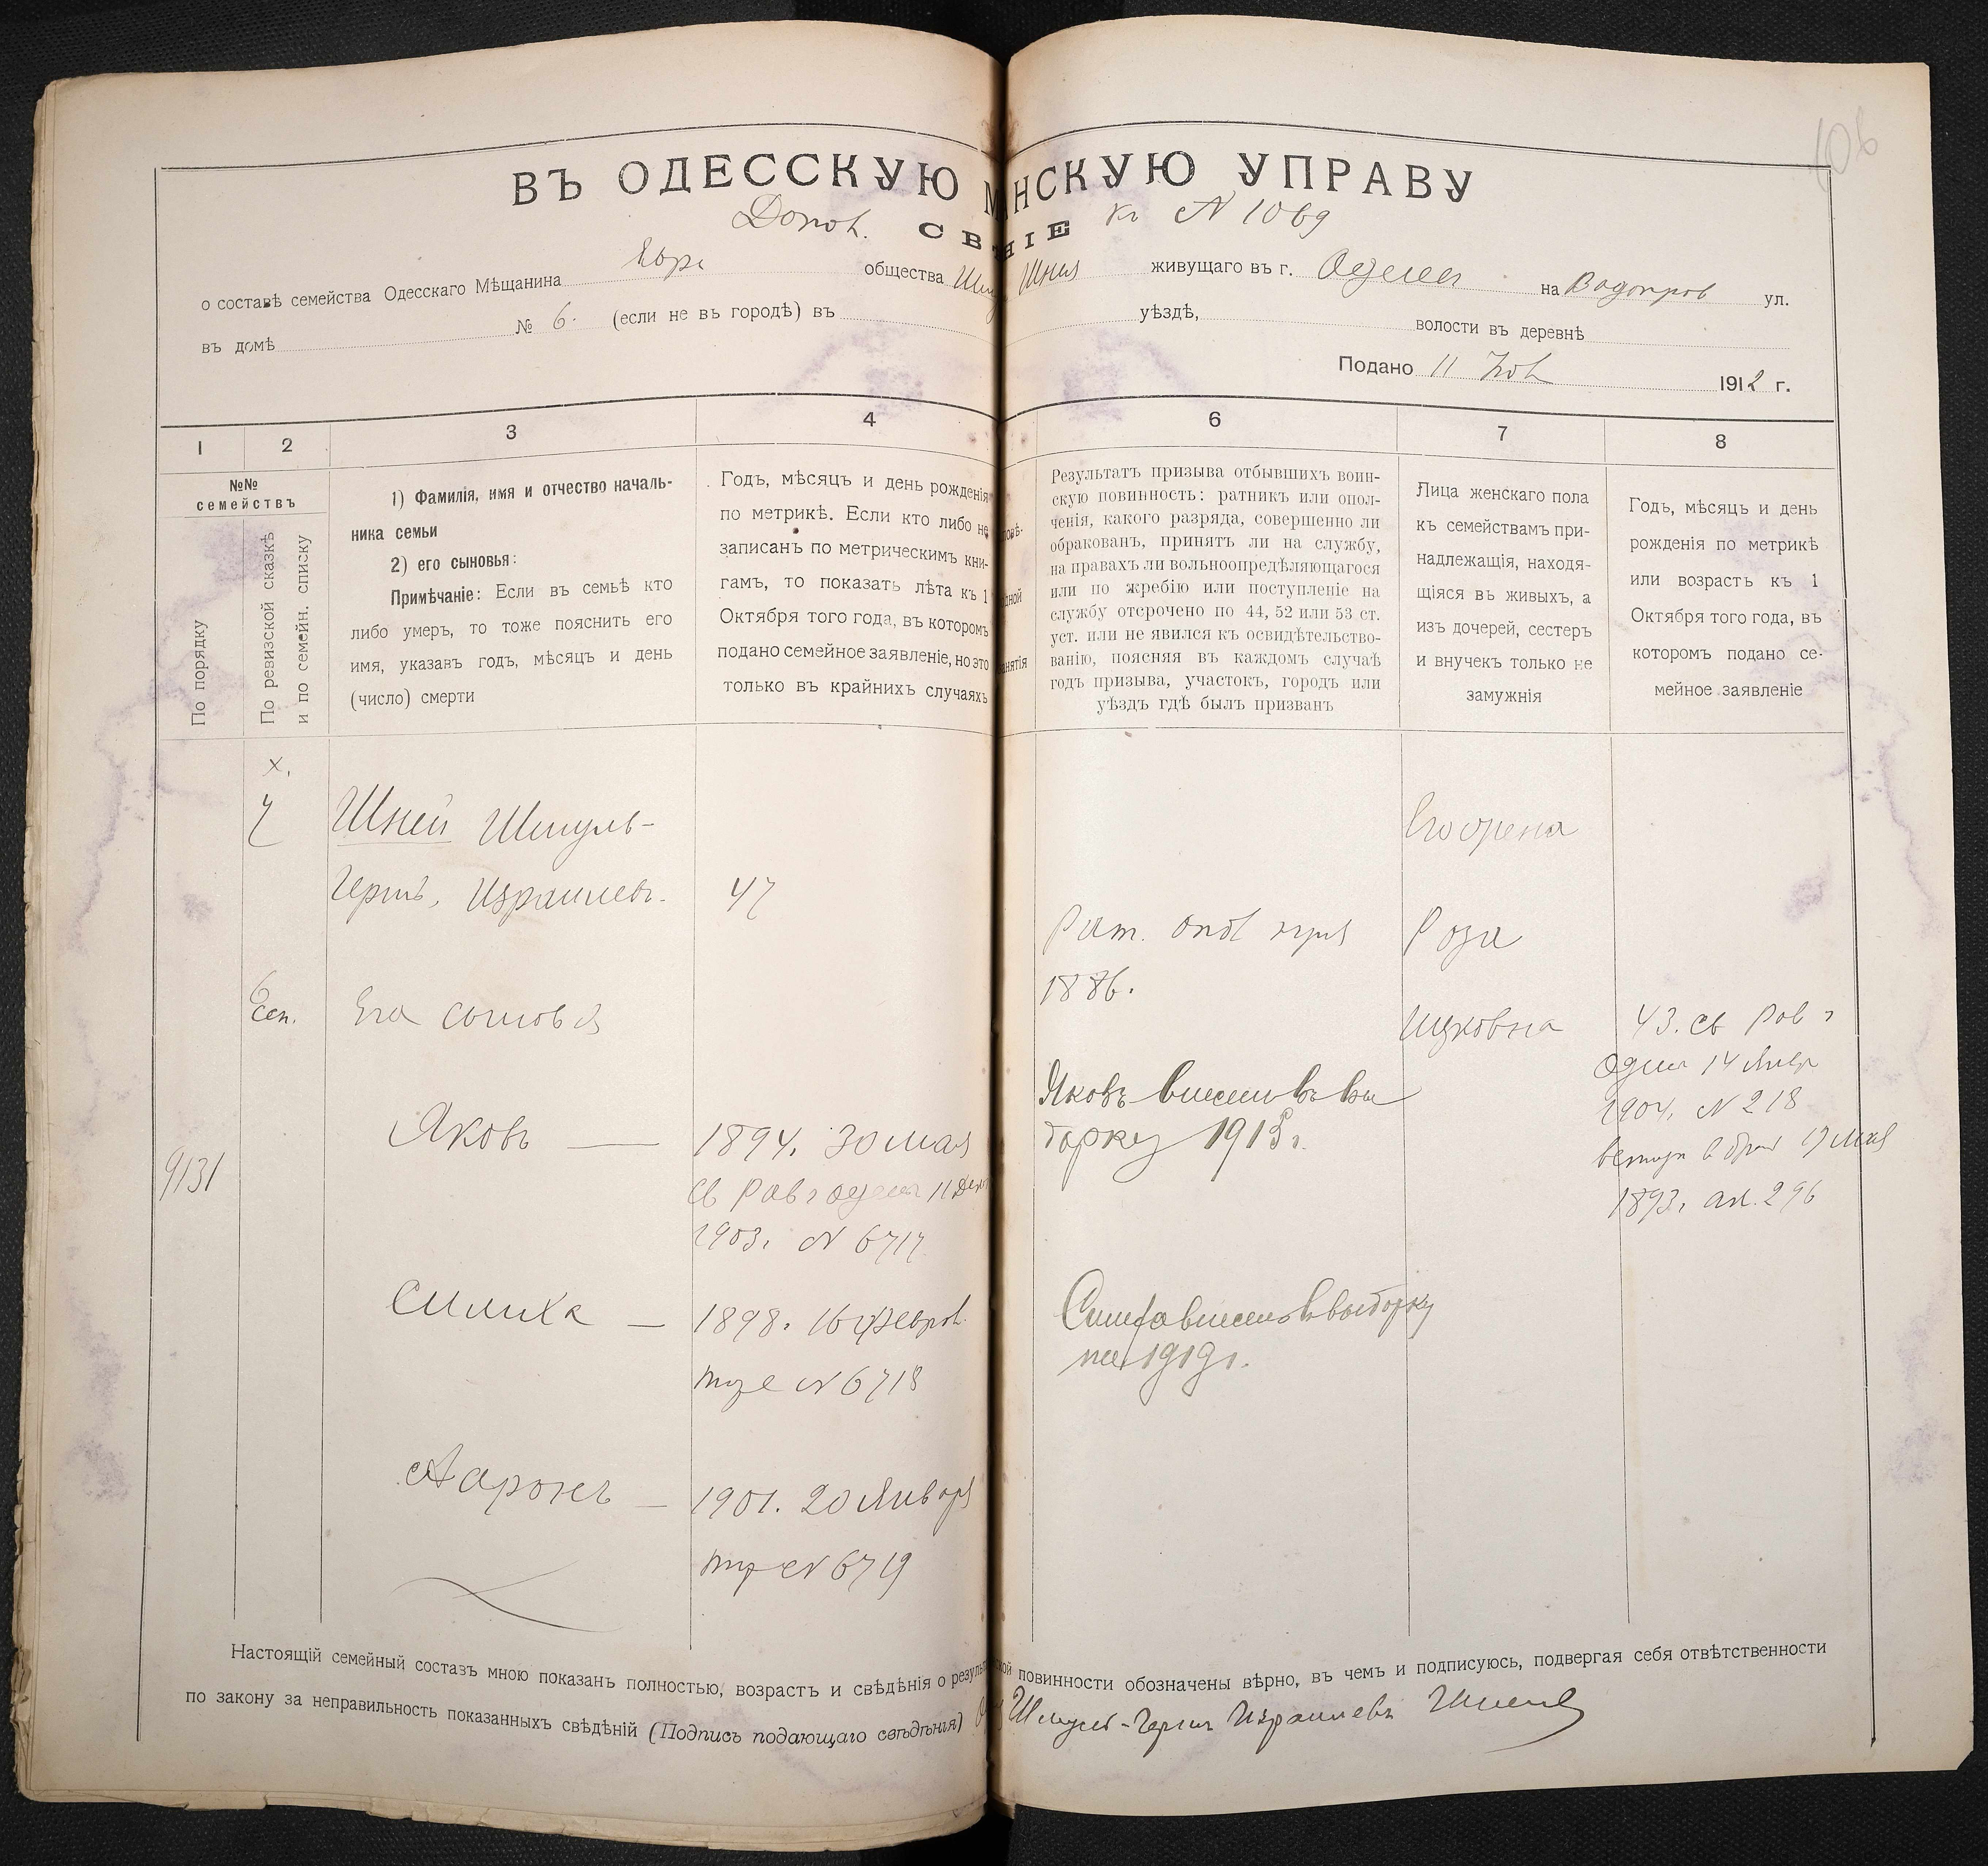 106
ВЪ ОДЕССКУЮ М НСКУЮ УПРАВУ
Допол. СВ НІЕ къ № 1069
о составѣ семейства Одесскаго Мѣщанина Евр. общества Шм Шнея живущаго въ г. Одессѣ на Водопров ул.
въ домѣ № 6. (если не въ городѣ) въ уѣздѣ, волости въ деревнѣ
Подано 11 1912 г.
1 2 3 4 6 7 8
№№ семействъ
По порядку
По ревизской сказкѣ
и по семейн. списку
1) Фамилія, имя и отчество началь-
ника семьи
2) его сыновья:
Примѣчаніе: Если въ семьѣ кто
либо умеръ, то тоже пояснить его
имя, указавъ годъ, мѣсяцъ и день
(число) смерти
Годъ, мѣсяцъ и день рожденія
по метрикѣ. Если кто либо не
записанъ по метрическимъ кни-
гамъ, то показать лѣта къ 1
Октября того года, въ которомъ
подано семейное заявленіе, но это
только въ крайнихъ случаяхъ
Результатъ призыва отбывшихъ воин-
скую повинность: ратникъ или опол-
ченія, какого разряда, совершенно ли
обракованъ, принятъ ли на службу,
на правахъ ли вольноопредѣляющагося
или по жребію или поступленіе на
службу отсрочено по 44, 52 или 53 ст.
уст. или не явился къ освидѣтельство-
ванію, поясняя въ каждомъ случаѣ
годъ призыва, участокъ, городъ или
уѣздъ гдѣ былъ призванъ
Лица женскаго пола
къ семействамъ при-
надлежащія, находя-
щіяся въ живыхъ, а
изъ дочерей, сестеръ
и внучекъ только не
замужнія
Годъ, мѣсяцъ и день
рожденія по метрикѣ
или возрастъ къ 1
Октября того года, въ
которомъ подано се-
мейное заявленіе
х.
Шней Шмуль-
Герш. Израилев. 47
6 сен.
Его сыновья
9131
Яковъ — 1894. 30 мая
св Рав г Одессы 11 Дек
1903. № 6717
Симха — 1898. 16 Феврал.
тоже № 6718
Ааронъ — 1901. 20 Января
тоже № 6719
Рат. опол
1886.
Яковъ внесенъ въ вы
борку 1915 г.
Симха внесенъ въ выборку
на 1919 г.
Его жена
Роза
Ицковна
43. св Рав г
Одессы 14 Янвр
1904. № 218
вступ в брак 19 мая
1893. ак. 296
Настоящій семейный составъ мною показанъ полностью, возрастъ и свѣдѣнія о резуль ской повинности обозначены вѣрно, въ чемъ и подписуюсь, подвергая себя отвѣтственности
по закону за неправильность показанныхъ свѣдѣній (Подпись подающаго свѣдѣнія) Шмуль-Герш Израилевъ Шней